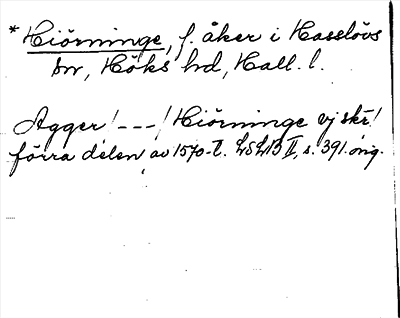 * Hiörninge, f. åker i Hasslövs
sn, Höks hd, Hall. l.
Agger / --- / Hiörninge vj skr /
förra delen av 1570-t. LSLB II, s. 391. orig.